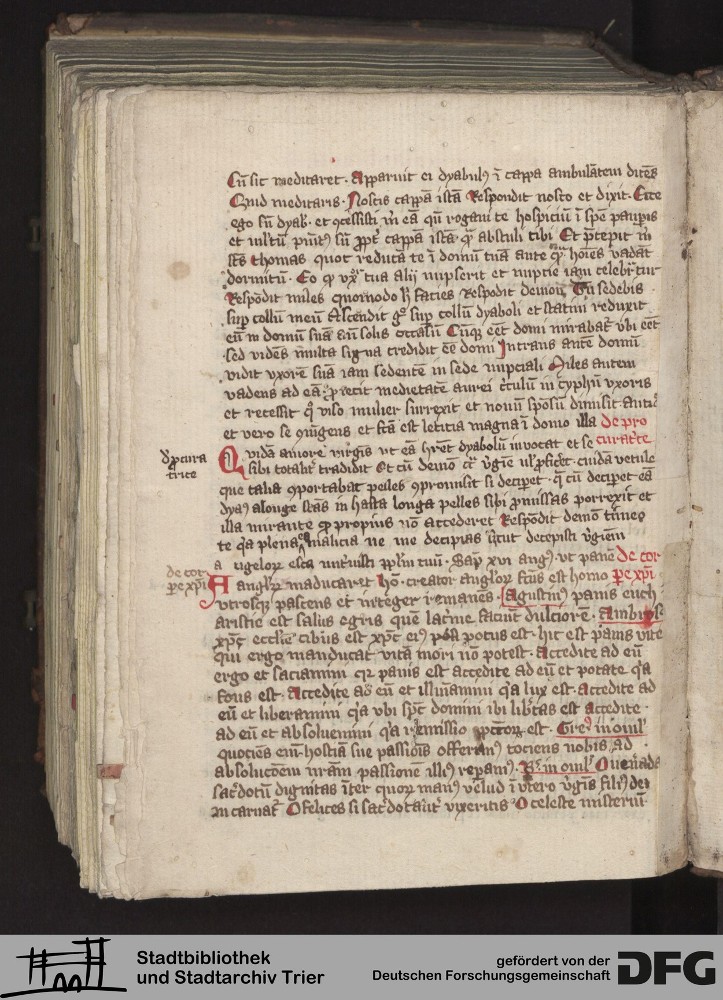 Cū sic meditaret. Apparuit ei dyabulꝰ ī cappa ambulātem dicēs
Quid meditaris. Noscis cappā istā Respondit nosco et dixit. Ecce
ego sū dyab. et ꝯcessisti m̄ eā qn̄ rogavi te hospiciū ī spē pauꝑis
et cappā istā abstuli tibi Et p̄cepit m̄
scs̄ thomas quot reducā te ī domū tuā ante hoīes vadāt
dormitū. Eo ꝙ vxᵒʳ tua alii nupserit et nupcie iam celebrātur
Respōdit miles quomodo h̄ facies Respōdit demon Tu sedebis
sup̄ collū meū Ascendit gᵒ sup̄ collū dyaboli et statim reduxit
eū in domū suā solis occasū domi mirabat vbi eēt
sed vidēs multa signa credidit eē domi Intrans autē domū
vidit vxorē suā iam sedentē in sede nupciali Miles autem
vadens ad eā ꝓiecit medietatē aurei ciculū in cyphū vxoris
et recessit qᵒ viso mulier surrexit et novū spōsū dimisit
et vero se ꝯiūgens et fcā est leticia magna ī domo illa de pro
curatᶜte
Quidā amore virgīs vt eā hr̄et dyabolū invocat et se
sibi totalit̄ tradidit Et cū demō vetule
que talia ꝯportabat pelles ꝯpromisit si deciꝑet eā
dyaꝰ alonge stās in hasta longa pelles sibi ꝓmissas porrexit et
illa mirante ꝙ propius nō accederet Respōdit demō timeo
te qa plena malicia ne me decipias sicut decepisti v̄giem
dꝓcura
trice
a ngelorꝫ esca nutrivisti ppl̄m tuū. Sap̄ xvi angꝰ. vt panē de cor
pe xp̄i
de cor
pe xp̄i
A anglorꝫ māducaret hō. creator anglorꝫ fcūs est homo
vtrosqꝫ pascens et integer remanēs. Agustinꝰ panis euch
aristie est salus egris que lac'me faciūt dulciorē. Ambroꝰ
xp̄c ecclīe cibus est xp̄c eiꝰ potus est. hic est panis vite
qui ergo manducat vitā mori nō potest. Accedite ad eū
ergo et saciamini qꝛ panis est accedite ad eū et potate qꝛ
fons est. Accedite ad eū et illuīamini qꝛ lux est. Accedite ad
eū et liberamini qꝛ vbi sp̄c domini ibi lib̄tas est accedite.
ad eū et absolvemini qꝛ remissio pcc̄orꝫ est. Greꝰ in omil
quociēs em̄ hostiā sue passiōis offerimꝰ tociens nobis ad
absoluciōem nr̄am passionē illiꝰ reparamꝰ. in omil O ven̄ada
sac̄dotū dignitas īter quorꝫ manꝰ velud ī vtero v̄gīs filiꝰ dei
incarnat̄ O felices si sac̄dotalit̄ vixeritis O celeste misteriū
Stadtbibliothek
und Stadtarchiv Trier
gefördert von der
Deutschen Forschungsgemeinschaft
DFG